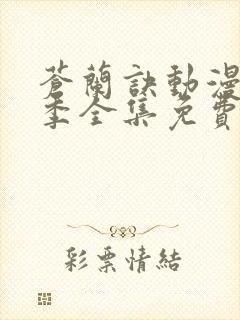 蒼蘭訣動漫
季全集免費
彩票情結